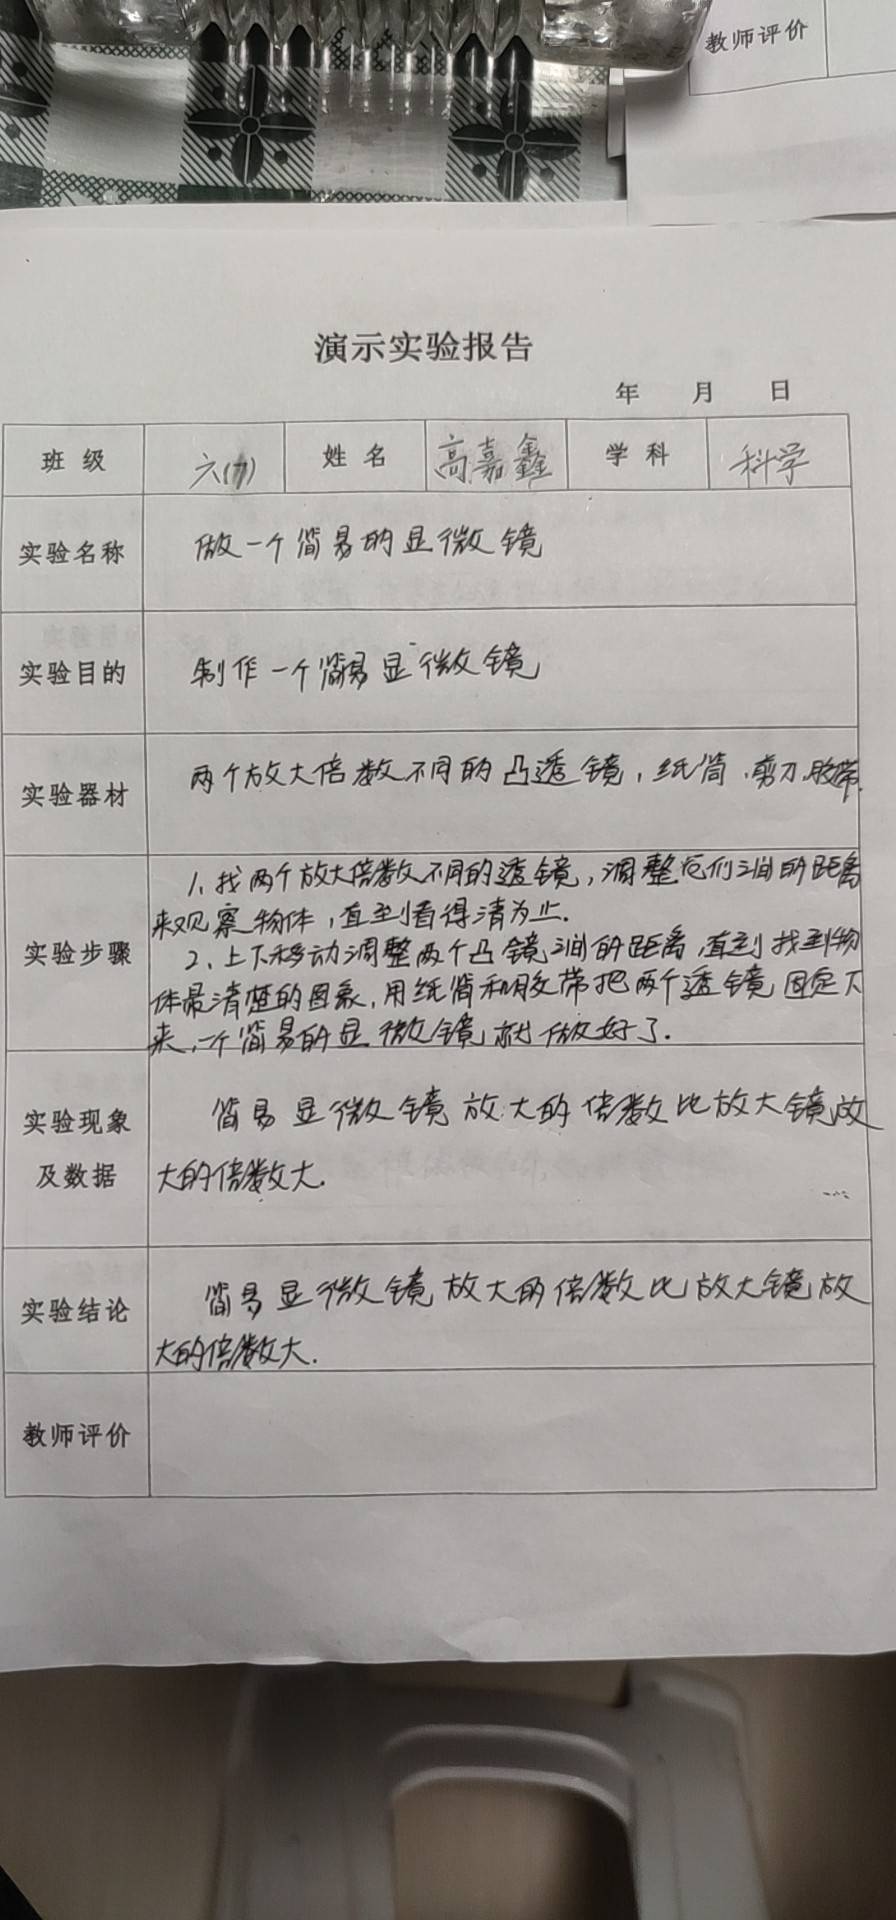 教师评价
演示实验报告
年 月 日
班级 六 姓名 高嘉鑫 学科 科学
实验名称 做一个简易的显微镜
实验目的 制作一个简易显微镜
实验器材 两个放大倍数不同的凸透镜，纸筒，剪刀，胶带.
实验步骤
1、找两个放大倍数不同的透镜，调整它们之间的距离
来观察物体，直至看得清为止.
2、上下移动调整两个凸镜之间的距离，直到找到物
体最清楚的图象，用纸筒和胶带把两个透镜固定下
来，一个简易的显微镜就做好了.
实验现象
及数据
简易显微镜放大的倍数比放大镜放
大的倍数大.
实验结论
简易显微镜放大的倍数比放大镜放
大的倍数大.
教师评价